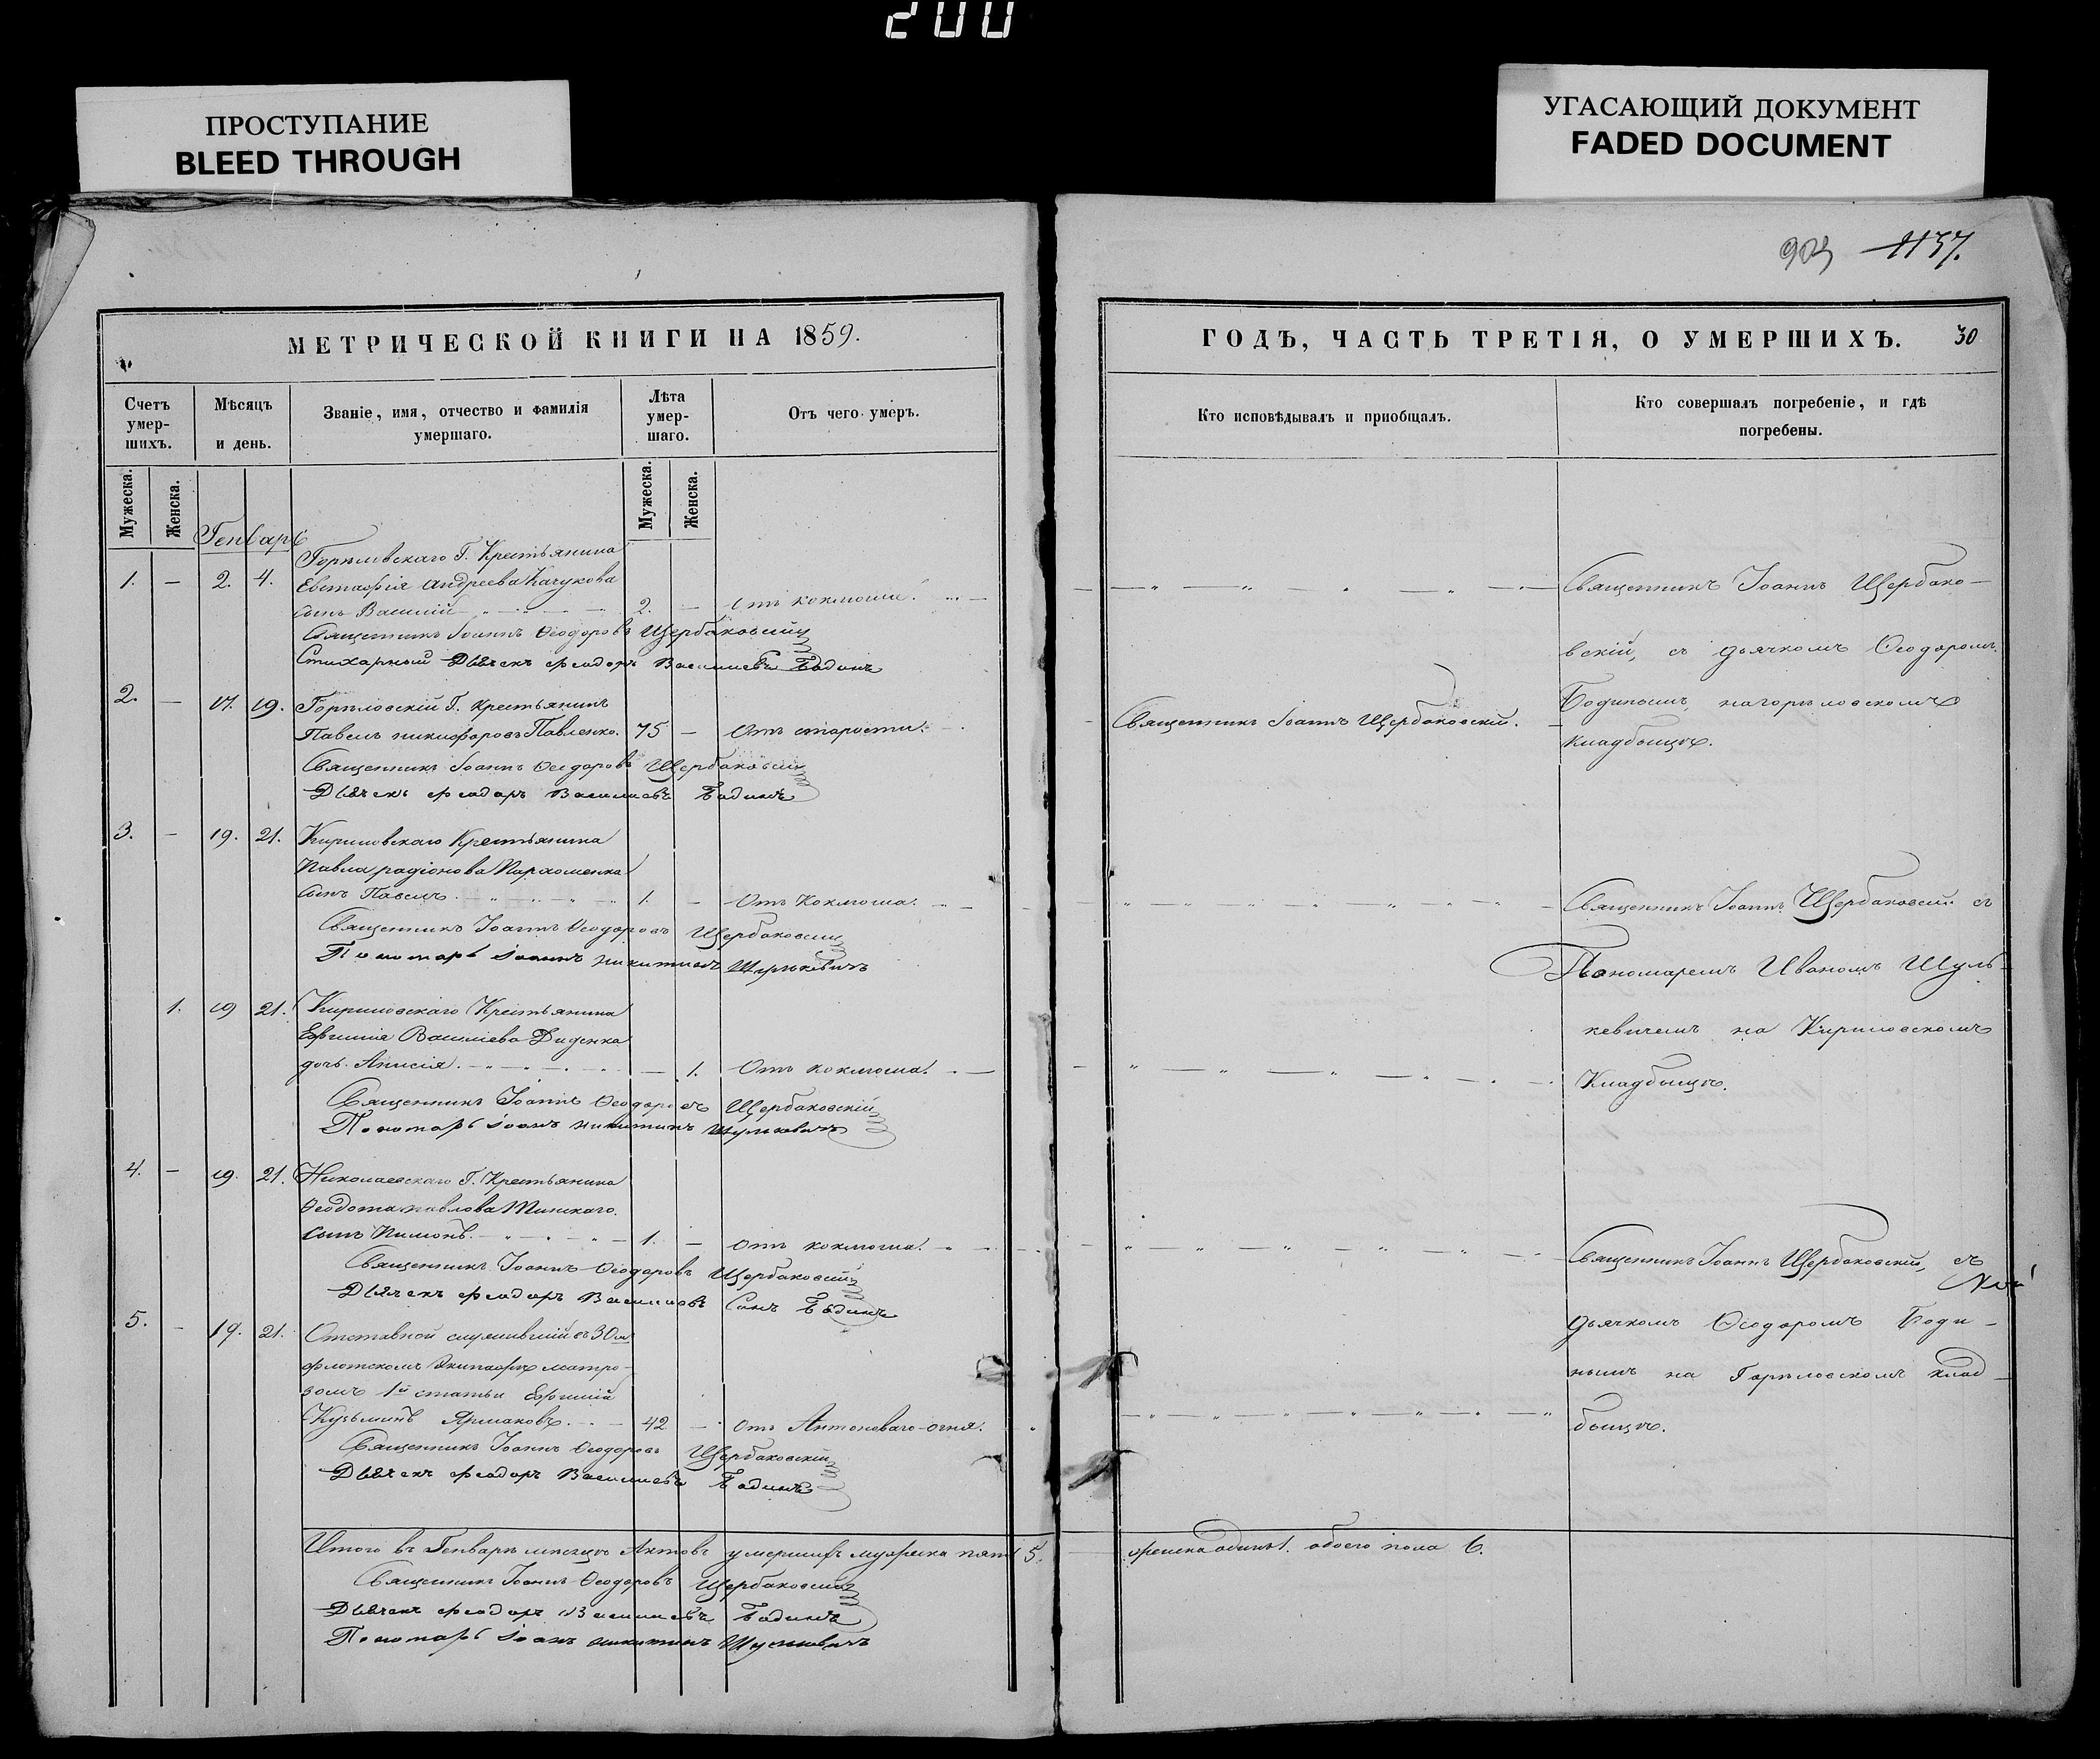 200
ПРОСТУПАНИЕ
BLEED THROUGH
УГАСАЮЩИЙ ДОКУМЕНТ
FADED DOCUMENT
1137.
МЕТРИЧЕСКОЙ КНИГИ НА 1859.
Счетъ умер-шихъ.
Мѣсяцъ и день.
Званіе, имя, отчество и фамилія умершаго.
Лѣта умер-шаго.
Отъ чего умеръ.
Мужеска.
Женска.
Мужеска.
Женска.
Генварь
Горѣловскаго Г. Крестьянина
1. — 2. 4. Евстафія Андреева Качукова
сынъ Василій 2. — Отъ коклюша.
Священникъ Іоаннъ Ѳеодоровъ Щербаковскій
Стихарный Дьячекъ Феодоръ Васильевъ Бодинъ
2. — 17. 19. Горѣловскій Г. Крестьянинъ
Павелъ Никифоровъ Павленко. 75 — Отъ старости.
Священникъ Іоаннъ Ѳеодоровъ Щербаковскій
Дьячекъ Феодоръ Васильевъ Бодинъ
3. — 19. 21. Кириловскаго Крестьянина
Павла Радіонова Пархоменка
сынъ Павелъ. 1. — Отъ Коклюша.
Священникъ Іоаннъ Ѳеодоровъ Щербаковскій
Пономарь Іоаннъ Никитинъ Шулькевичъ
1. 19 21. Кириловскаго Крестьянина
Ефимія Василіева Диденка
дочь Анисія. — 1. Отъ коклюша.
Священникъ Іоаннъ Ѳеодоровъ Щербаковскій
Пономарь Іоанъ Никитинъ Шулькевичъ
4. — 19. 21. Николаевскаго Г. Крестьянина
Ѳеодота Павлова
сынъ Пимонъ. 1. — Отъ коклюша.
Священникъ Іоаннъ Ѳеодоровъ Щербаковскій
Дьячекъ Феодоръ Васильевъ Сынъ Бодинъ
5. — 19. 21. Отставной служившій въ 30мъ
флотскомъ Экипажѣ матро-
зомъ 1й статьи Ефимій
Кузьминъ Ярмаковъ. 42 — Отъ Антоноваго-огня.
Священникъ Іоаннъ Ѳеодоровъ Щербаковскій
Дьячекъ Феодоръ Васильевъ Бодинъ
Итого въ Генварѣ мѣсяцѣ Актовъ умершихъ мужеска пять 5.
Священникъ Іоаннъ Ѳеодоровъ Щербаковскій
Дьячекъ Феодоръ Васильевъ Бодинъ
Пономарь Іоанъ Никитинъ Шулькевичъ
ГОДЪ, ЧАСТЬ ТРЕТІЯ, О УМЕРШИХЪ. 30
Кто исповѣдывалъ и пріобщалъ.
Кто совершалъ погребеніе, и гдѣ погребены.
Священникъ Іоаннъ Щербако-
вскій, съ дьячкомъ Ѳеодоромъ
Бодинымъ, на горѣловскомъ
кладбищѣ.
Священникъ Іоаннъ Щербаковскій.
Священникъ Іоаннъ Щербаковскій съ
Пономаремъ Иваномъ Шуль-
кевичемъ на Кириловскомъ
Кладбищѣ.
Священникъ Іоаннъ Щербаковскій, съ
дьячкомъ Ѳеодоромъ Боди-
нымъ на Горѣловскомъ клад-
бищѣ.
женска одинъ 1. обоего пола 6.